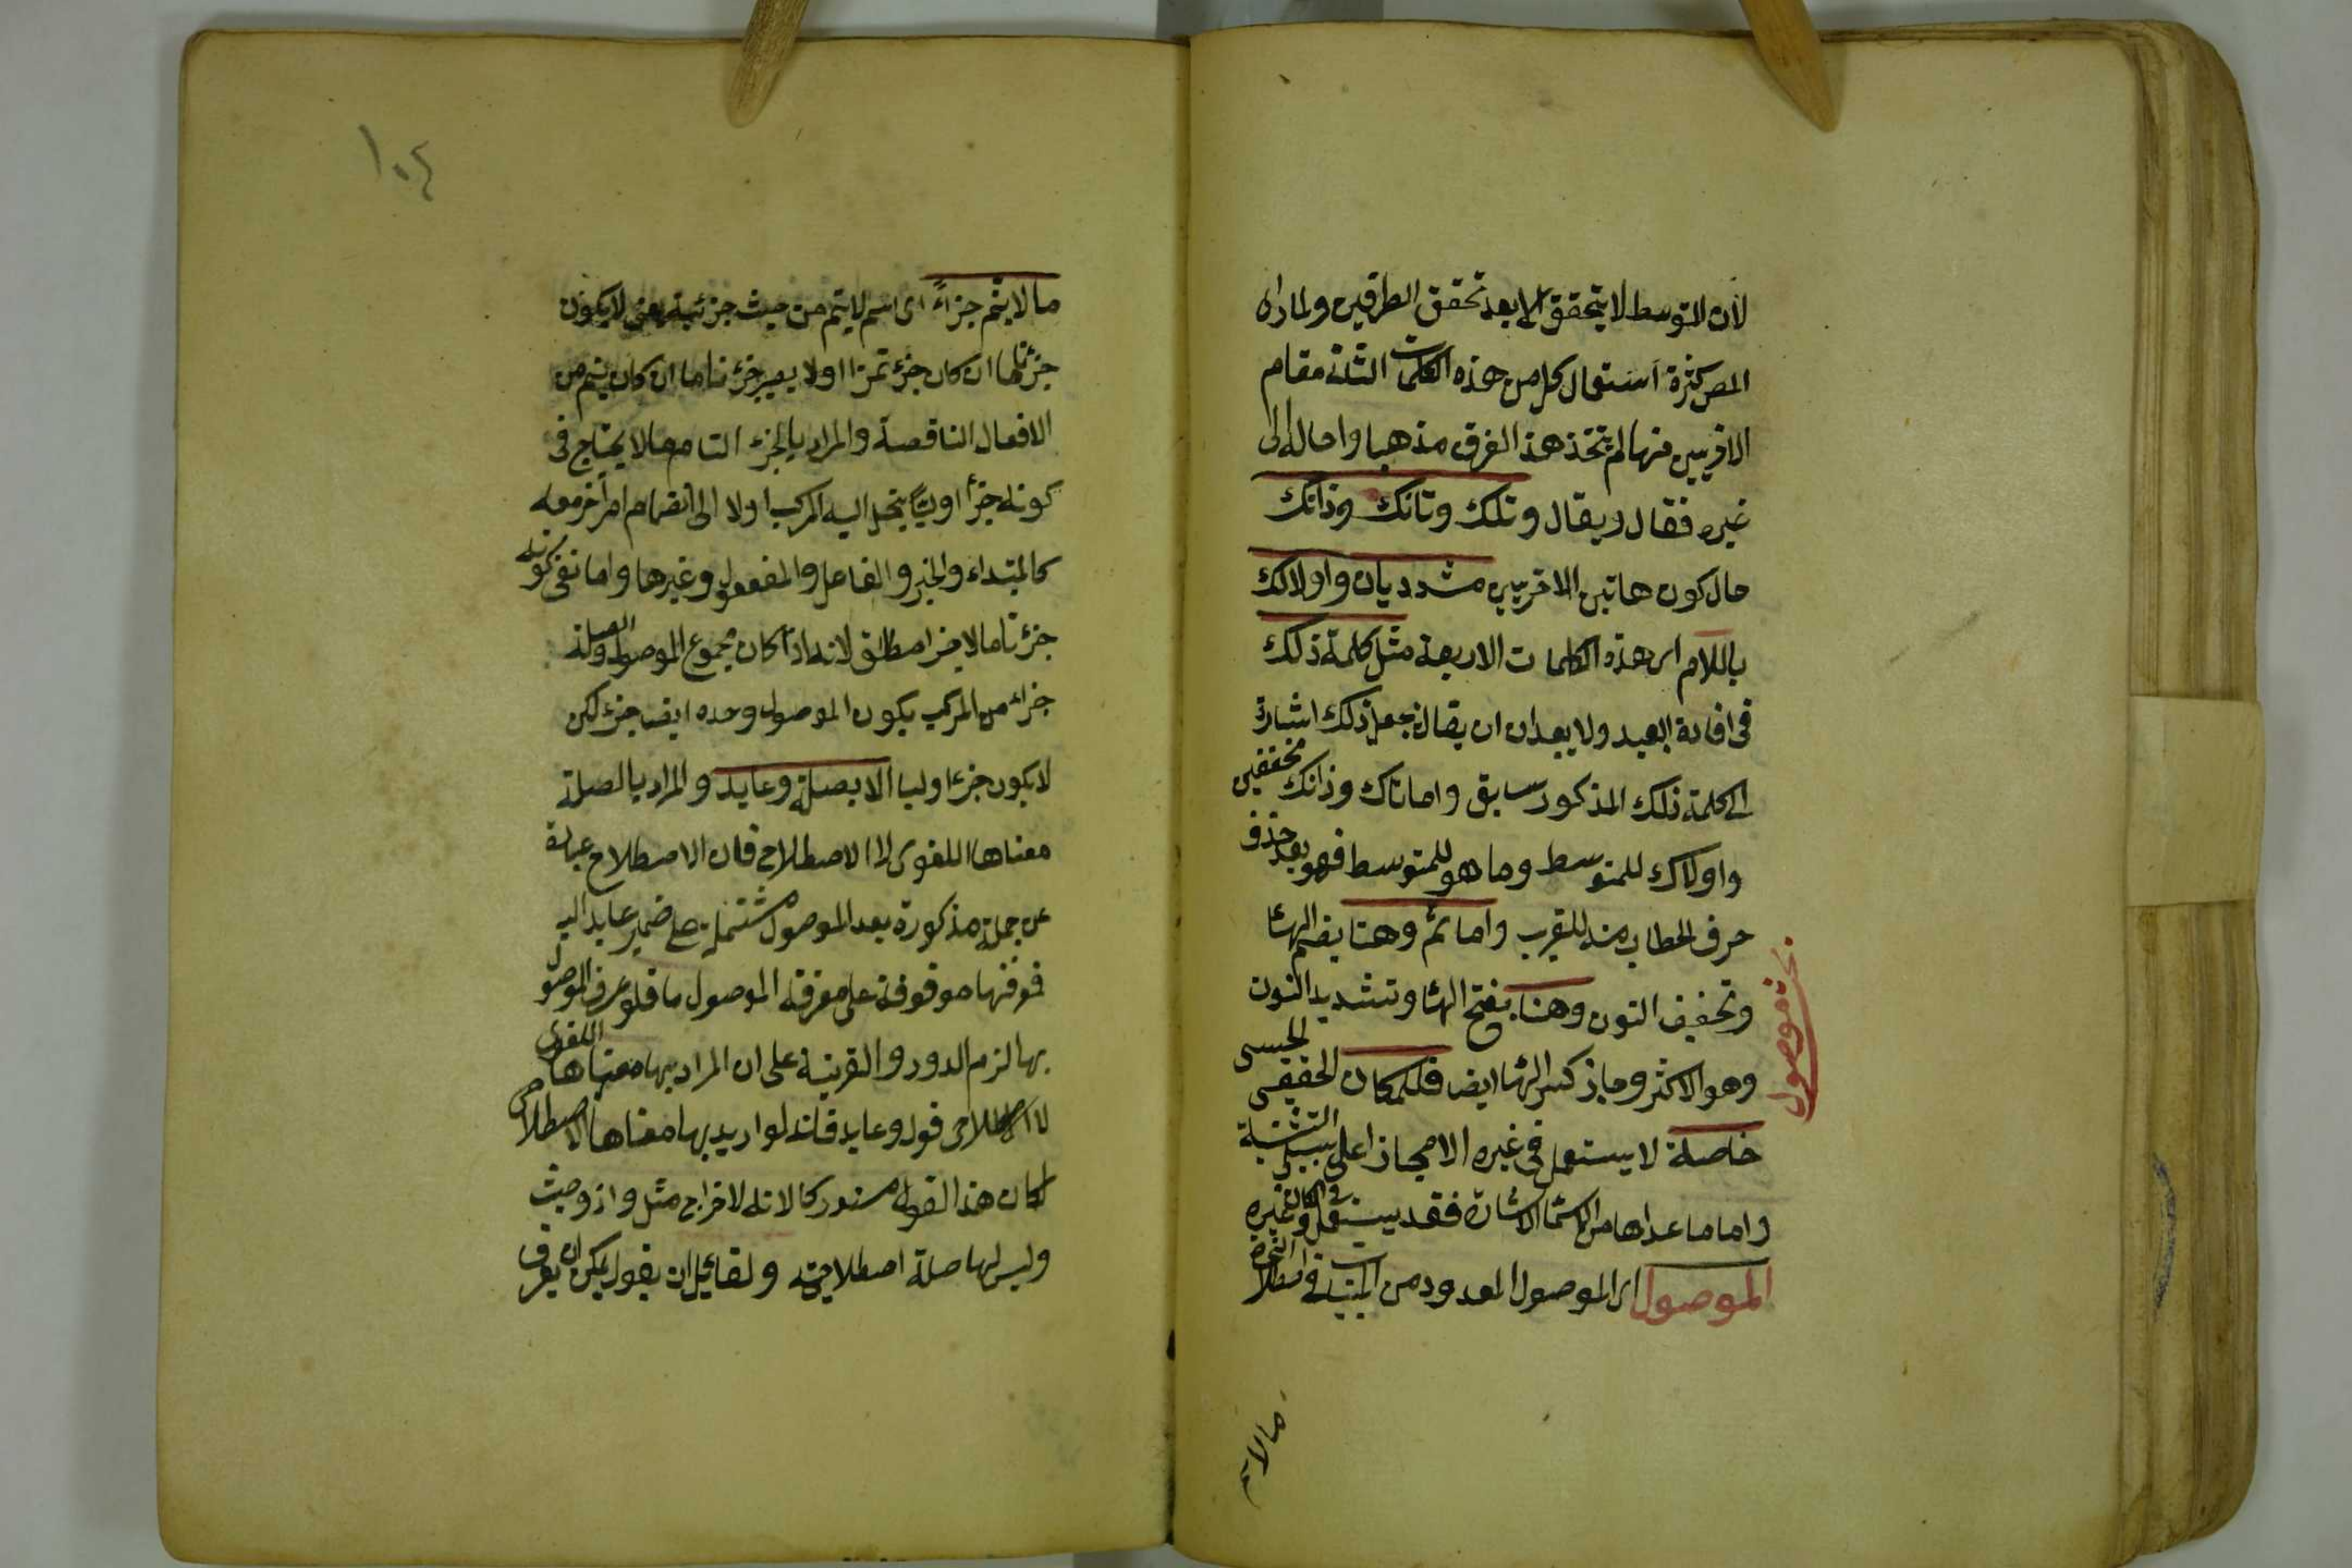 لأن التوسط لا يتحقق الا بعد تحقق الطرفين ولما راه
المص كثرة استعمال كل من هذه الكلمات الثلثة مقام
الاخريين منها لم يتخذ هذا الفرق مذهبا واحاله الى
غيره فقال ويقال وتلك وتانك وذانك
حال كون هاتين الاخريين مشددتان واولالك
باللام اى هذه الكلمات الاربعة مثل كلمة ذلك
فى افادة البعيد ولا يبعد ان يقال جعل ذلك اشارة
الى كلمة ذلك المذكور سابق واما تاك وذانك مخففين
واولاك للمتوسط وما هو للمتوسط فهو بعد حذف
حرف الخطاب منه للقريب واما ثم وهنا بضم الهاء
وتخفيف النون وهنا بفتح الهاء وتشديد النون
وهو الاكثر وجاز كسر الهاء ايض فللمكان الحقيقى الحسى
خاصة لا يستعمل فى غيره الا مجازا على سبيل التشبيه
واما ما عداها من اسماء الاشارة فقد يستعمل فى المكان وغيره
الموصول اى الموصول المعدود من المبنيات فى اصطلاح النحاة
بحث موصول
ما لا يتم
١٠٤
ما لا يتم جزاءً اى اسم لا يتم من حيث جزئيته يعنى لا يكون
جزء تاما ان كان جزء تمزا اولا يصير جزء تاما ان كان يتم من
الافعال الناقصة والمراد بالجزء التام ما لا يحتاج فى
كونه جزأ اوليًّا ينحل اليه المركب اولا الى انضمام امر اخر معه
كالمبتداء والخبر والفاعل والمفعول وغيرها واما نفى كونه
جزء تاما لا جزا مطلق لانه اذا كان مجموع الموصول والصلة
جزاء من المركب يكون الموصول وحده ايض جزء لكن
لا يكون جزءا وليا الا بصلة وعايد والمراد بالصلة
معناها اللغوى لا الاصطلاحى فان الاصطلاح عبارة
عن جملة مذكورة بعد الموصول مشتملة على ضمير عايد اليه
فمعرفتها موقوفة على معرفة الموصول فلو عرف الموصول
بها لزم الدور والقرينة على ان المراد بها معناها اللغوى
لا الاصطلاحى قوله وعايد فانه لو اريد بها معناها الاصطلاحى
لكان هذا القول مستدركا لانه لاخراج مثل واذ وحيث
وليس لها صلة اصطلاحية ولقائل ان يقول يمكن ان يعرف